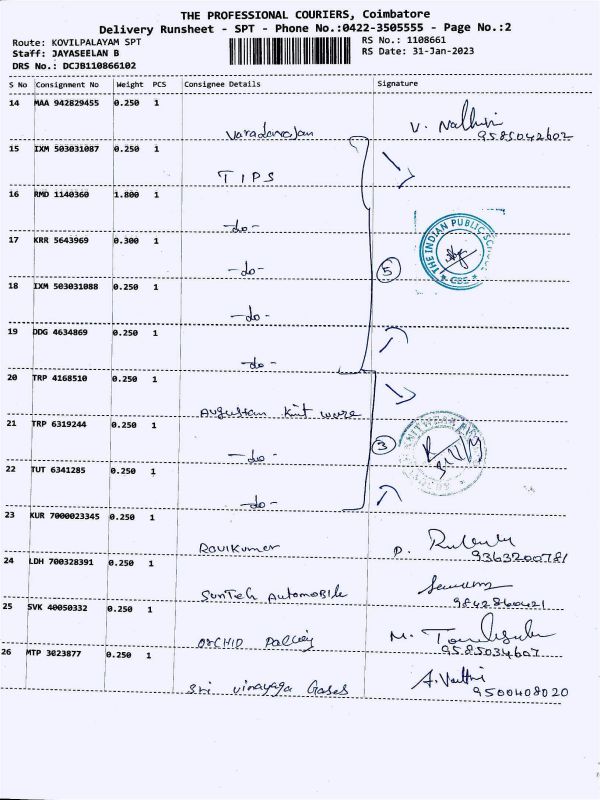 THE PROFESSIONAL COURIERS, Coimbatore
Delivery Runsheet - SPT - Phone No.:0422-3505555 - Page No.:2
Route: KOVILPALAYAM SPT RS No.: 1108661
Staff: JAYASEELAN B RS Date: 31-Jan-2023
DRS No.: DCJB110866102
S No Consignment No Weight PCS Consignee Details Signature
14 MAA 942829455 0.250 1
Varadarajan V. 9585042602
15 IXM 503031087 0.250 1
TIPS
16 RMD 1140360 1.800 1
-do-
17 KRR 5643969 0.300 1
THE INDIAN PUBLIC SCHOOL
CBE
-do- 5
18 IXM 503031088 0.250 1
-do-
19 DDG 4634869 0.250 1
-do-
20 TRP 4168510 0.250 1
Augustan Knit wure
21 TRP 6319244 0.250 1
-do- 3
22 TUT 6341285 0.250 1
-do-
23 KUR 7000023345 0.250 1
Ravikumar 9363200781
24 LDH 700328391 0.250 1
SunTeh Automobile 9842860421
25 SVK 40050332 0.250 1
ORCHID M. 9585034607
26 MTP 3023877 0.250 1
Sri Vinayaga Gases A. 9500408020